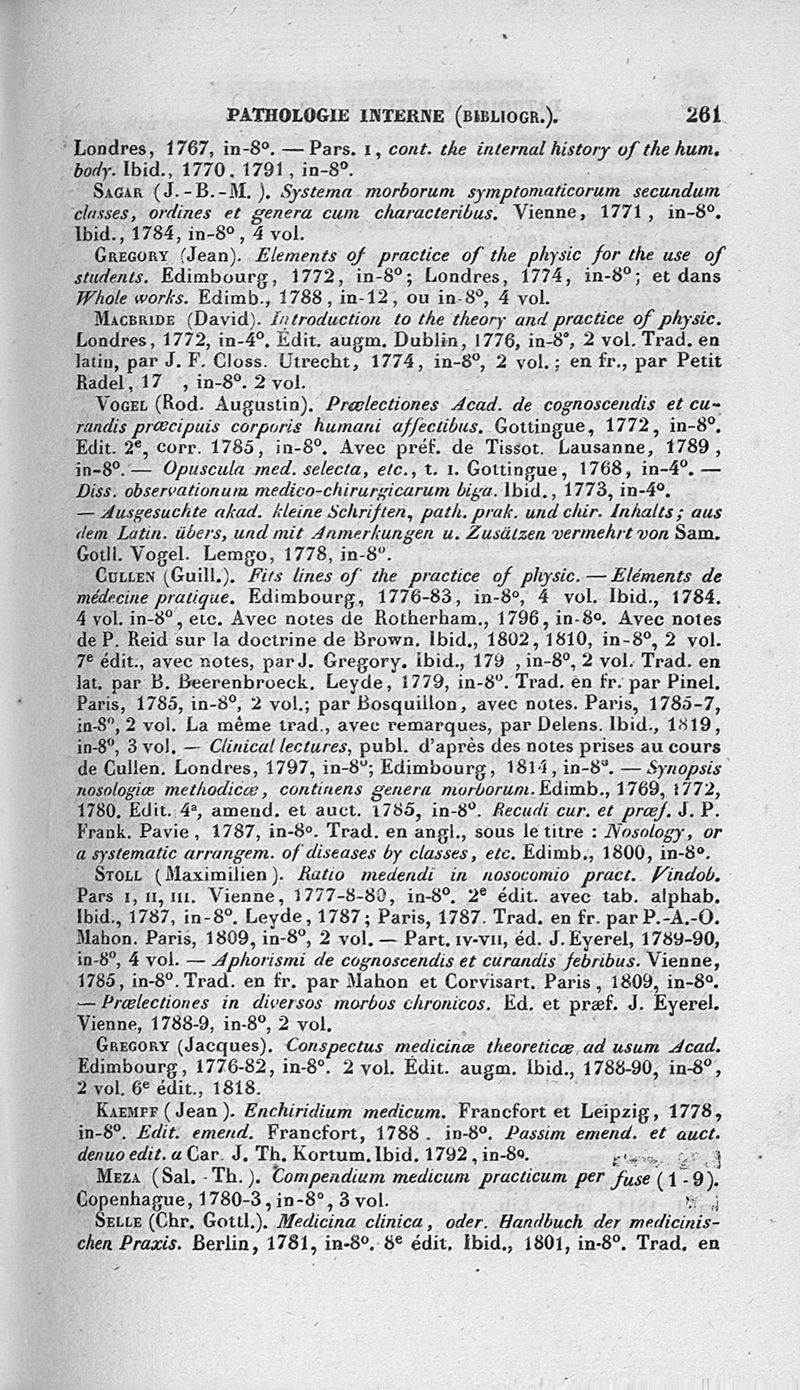 PATHOLOGIE INTERNE (BIBLIOGR.). 261
Londres, 1767, in-8º. — Pars. I, cont. the internal history of the hum.
body. Ibid., 1770. 1791, in-8º.
SAGAR (J.-B.-M.). Systema morborum symptomaticorum secundum
classes, ordines et genera cum characteribus. Vienne, 1771, in-8º.
Ibid., 1784, in-8º, 4 vol.
GREGORY (Jean). Elements of practice of the physic for the use of
students. Edimbourg, 1772, in-8º; Londres, 1774, in-8º; et dans
Whole works. Edimb., 1788, in-12, ou in-8º, 4 vol.
MACBRIDE (David). Introduction to the theory and practice of physic.
Londres, 1772, in-4º. Édit. augm. Dublin, 1776, in-8º, 2 vol. Trad. en
latin, par J. F. Closs. Utrecht, 1774, in-8º, 2 vol.; en fr., par Petit
Radel, 17 , in-8º. 2 vol.
VOGEL (Rod. Augustin). Prælectiones Acad. de cognoscendis et cu-
randis præcipuis corporis humani affectibus. Gottingue, 1772, in-8º.
Edit. 2e, corr. 1785, in-8º. Avec préf. de Tissot. Lausanne, 1789,
in-8º. — Opuscula med. selecta, etc., t. I. Gottingue, 1768, in-4º. —
Diss. observationum medico-chirurgicarum biga. Ibid., 1773, in-4º.
— Ausgesuchte akad. kleine Schriften, path. prak. und chir. Inhalts; aus
dem Latin. übers, und mit Anmerkungen u. Zusätzen vermehrt von Sam.
Gotll. Vogel. Lemgo, 1778, in-8º.
CULLEN (Guill.). Fits lines of the practice of physic. — Eléments de
médecine pratique. Edimbourg, 1776-83, in-8º, 4 vol. Ibid., 1784.
4 vol. in-8º, etc. Avec notes de Rotherham., 1796, in-8º. Avec notes
de P. Reid sur la doctrine de Brown. Ibid., 1802, 1810, in-8º, 2 vol.
7e édit., avec notes, par J. Gregory. Ibid., 179 , in-8º, 2 vol. Trad. en
lat. par B. Beerenbroeck. Leyde, 1779, in-8º. Trad. en fr. par Pinel.
Paris, 1785, in-8º, 2 vol.; par Bosquillon, avec notes. Paris, 1785-7,
in-8º, 2 vol. La même trad., avec remarques, par Delens. Ibid., 1819,
in-8º, 3 vol. — Clinical lectures, publ. d'après des notes prises au cours
de Cullen. Londres, 1797, in-8º; Edimbourg, 1814, in-8º. — Synopsis
nosologiæ methodicæ, continens genera morborum. Edimb., 1769, 1772,
1780. Edit. 4a, amend. et auct. 1785, in-8º. Recudi cur. et præf. J. P.
Frank. Pavie, 1787, in-8º. Trad. en angl., sous le titre : Nosology, or
a systematic arrangem. of diseases by classes, etc. Edimb., 1800, in-8º.
STOLL (Maximilien). Ratio medendi in nosocomio pract. Vindob.
Pars I, II, III. Vienne, 1777-8-80, in-8º. 2e édit. avec tab. alphab.
Ibid., 1787, in-8º. Leyde, 1787; Paris, 1787. Trad. en fr. par P.-A.-O.
Mahon. Paris, 1809, in-8º, 2 vol. — Part. IV-VII, éd. J. Eyerel, 1789-90,
in-8º, 4 vol. — Aphorismi de cognoscendis et curandis febribus. Vienne,
1785, in-8º. Trad. en fr. par Mahon et Corvisart. Paris, 1809, in-8º.
— Prælectiones in diversos morbos chronicos. Ed. et præf. J. Eyerel.
Vienne, 1788-9, in-8º, 2 vol.
GREGORY (Jacques). Conspectus medicinæ theoreticæ ad usum Acad.
Edimbourg, 1776-82, in-8º. 2 vol. Édit. augm. Ibid., 1788-90, in-8º,
2 vol. 6e édit., 1818.
KAEMPF (Jean). Enchiridium medicum. Francfort et Leipzig, 1778,
in-8º. Edit. emend. Francfort, 1788. in-8º. Passim emend. et auct.
denuo edit. a Car. J. Th. Kortum. Ibid. 1792, in-8º.
MEZA (Sal. - Th.). Compendium medicum practicum per fuse (1-9).
Copenhague, 1780-3, in-8º, 3 vol.
SELLE (Chr. Gottl.). Medicina clinica, oder. Handbuch der medicinis-
chen Praxis. Berlin, 1781, in-8º. 8e édit. Ibid., 1801, in-8º. Trad. en